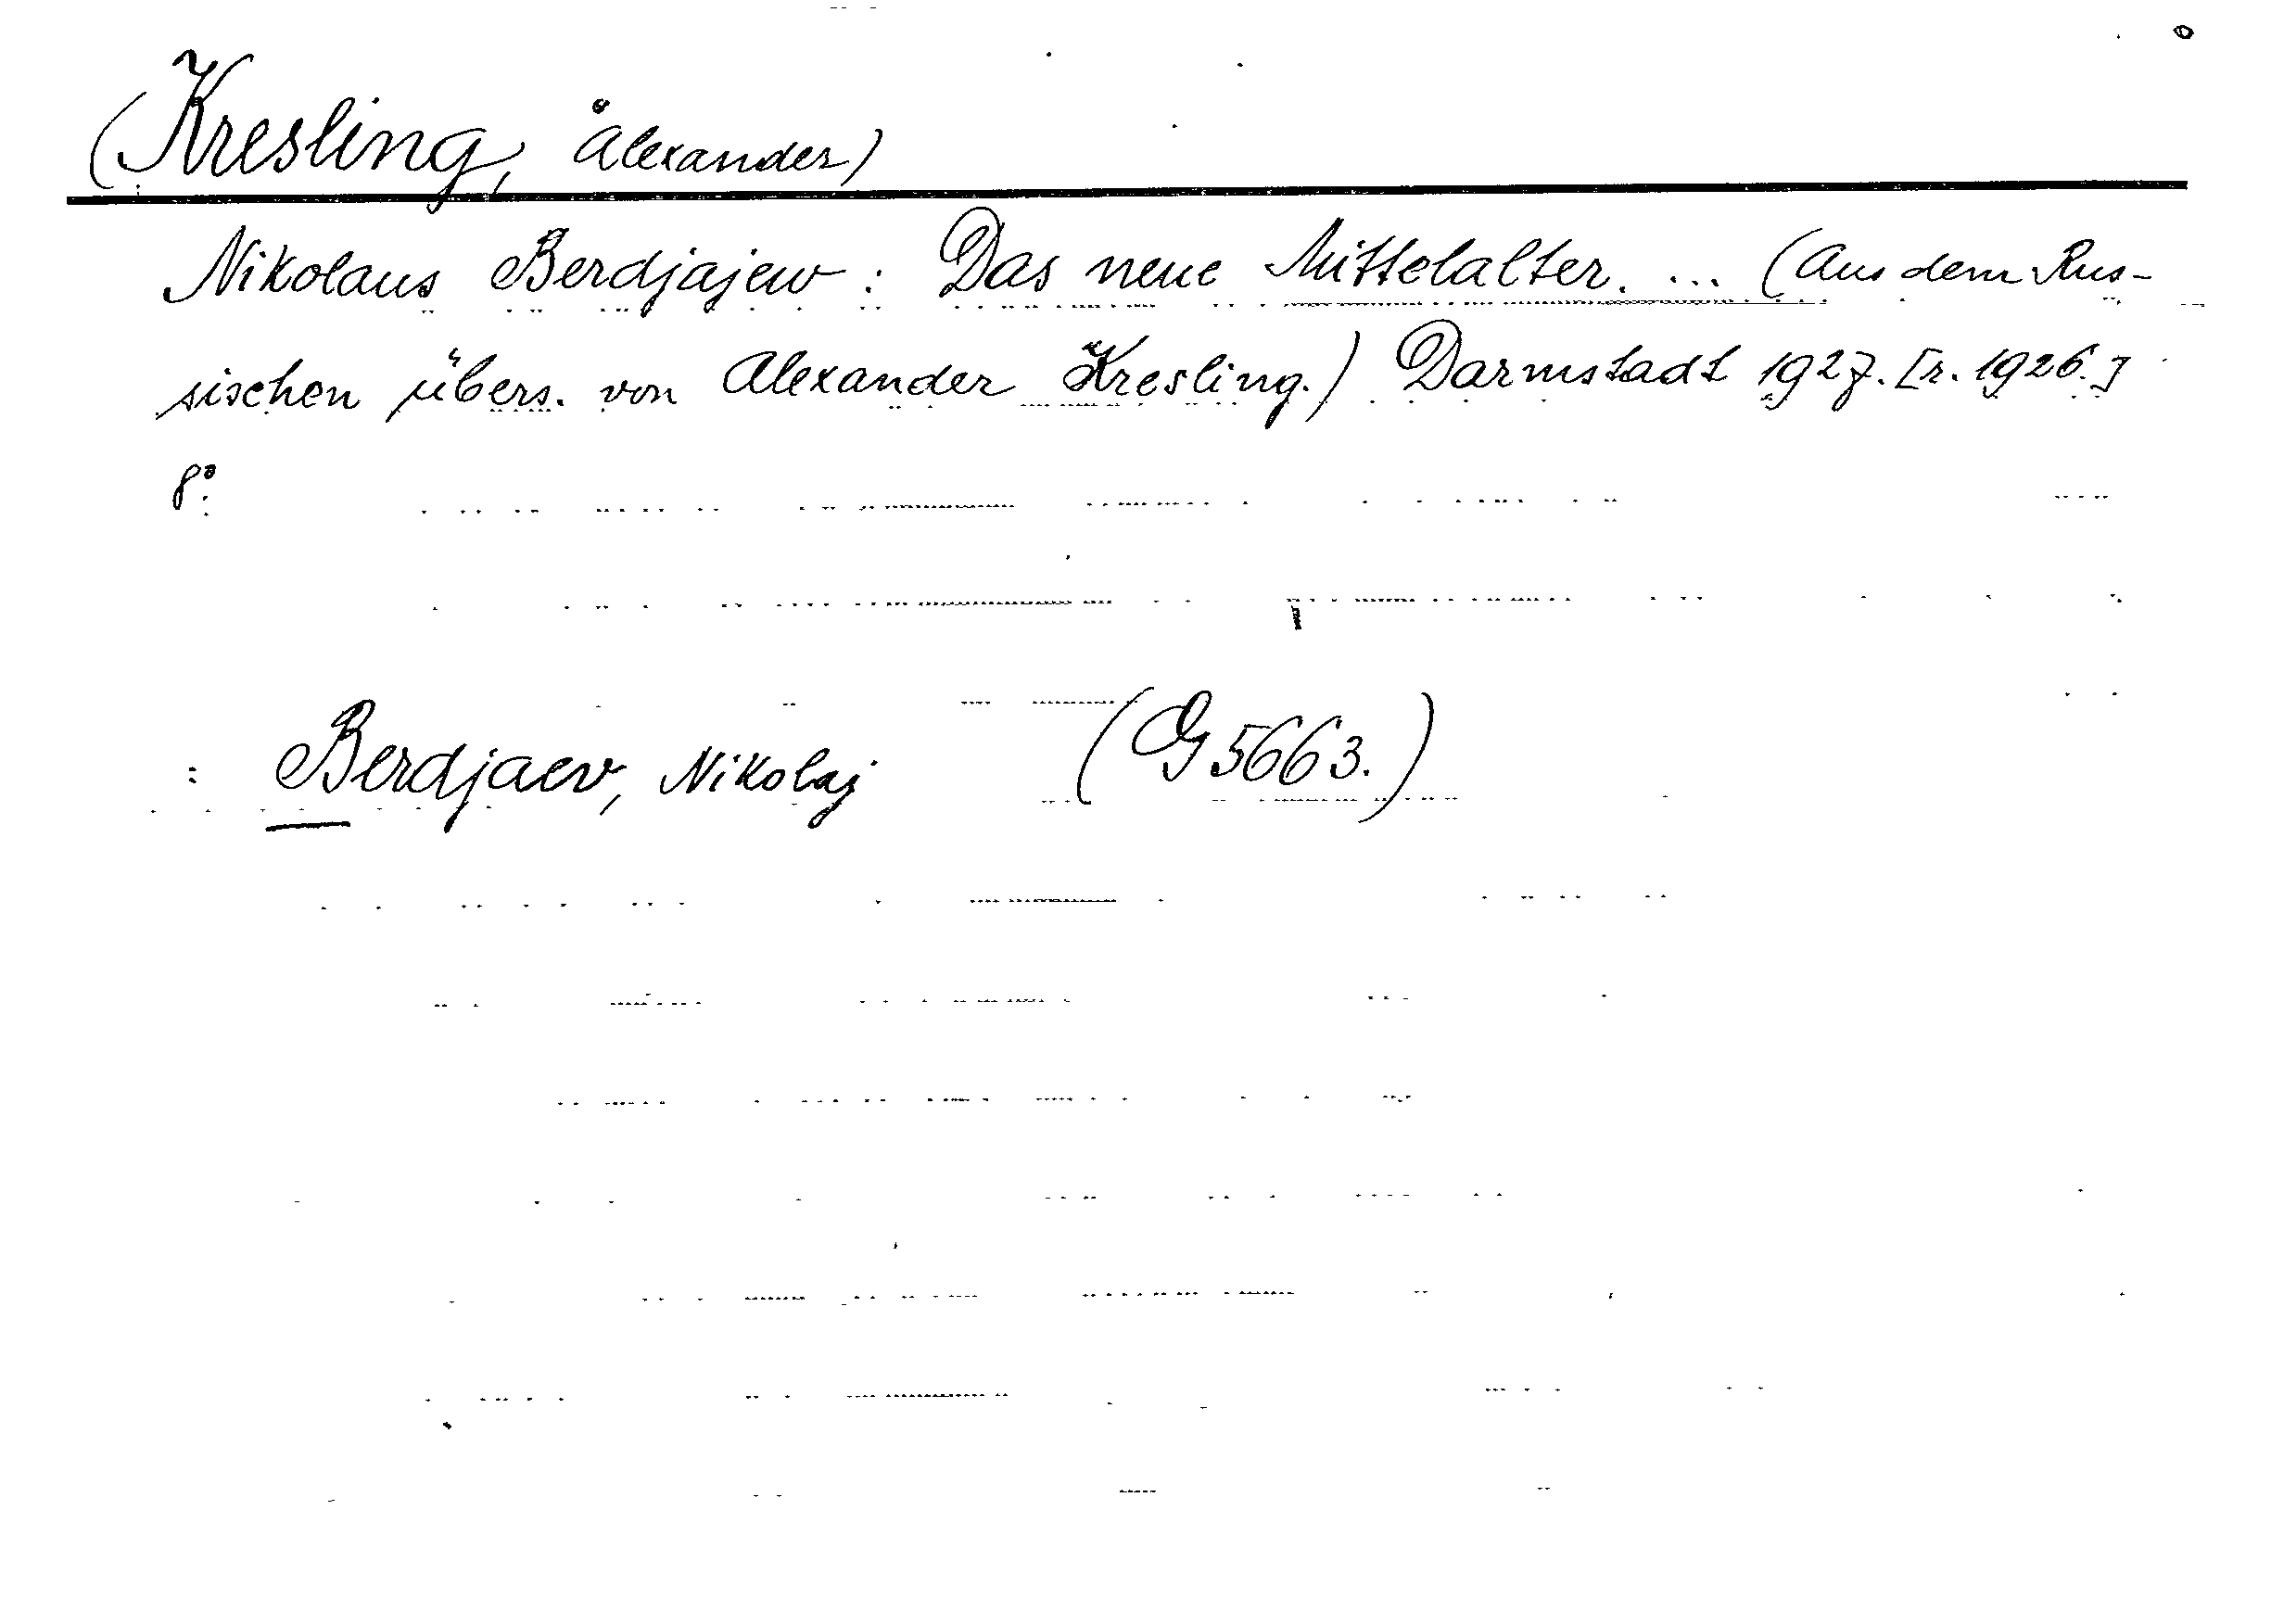 (Kresling, Alexander)
Nikolaus Berdjajew: Das neue Mittelalter. ... (Aus dem Rus-
sischen übers. von Alexander Kresling.) Darmstadt 1927. [r. 1926.]
8°.
: Berdjaev, Nikolaj (G 5663.)